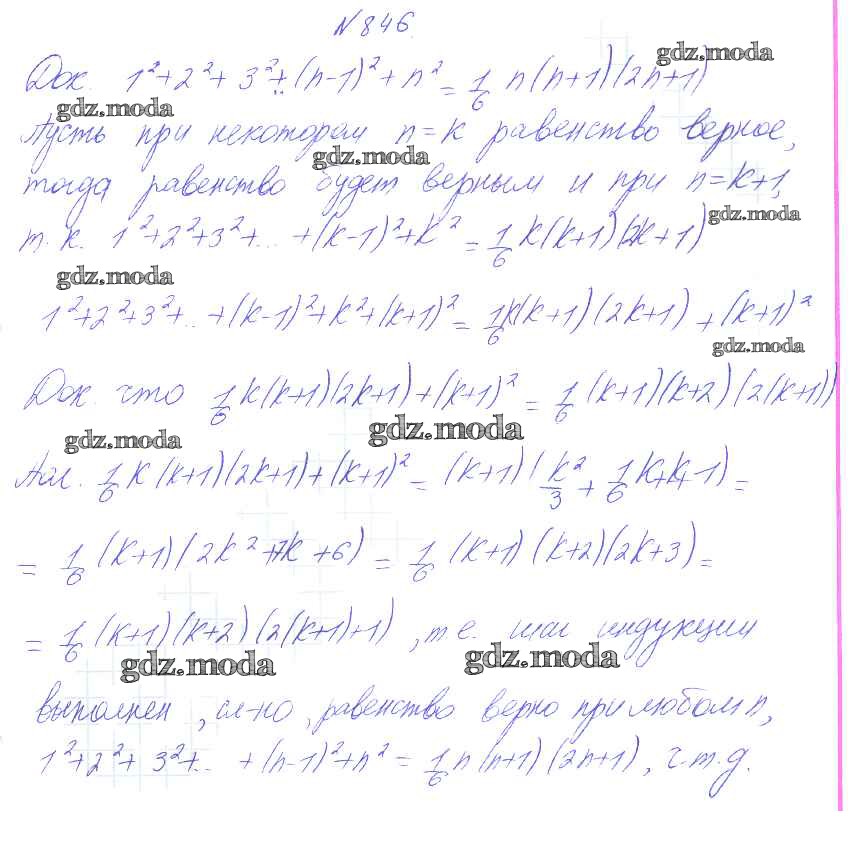 № 846.
gdz.moda
Док. 1²+2²+3²+...(n-1)²+n² = 1/6 n(n+1)(2n+1)
gdz.moda
Пусть при некотором n=k равенство верное,
gdz.moda
тогда равенство будет верным и при n=k+1,
gdz.moda
т. к. 1²+2²+3²+... +(k-1)²+k² = 1/6 k(k+1)(2k+1)
gdz.moda
1²+2²+3²+... +(k-1)²+k²+(k+1)² = 1/6 k(k+1)(2k+1) + (k+1)²
gdz.moda
Док. что 1/6 k(k+1)(2k+1)+(k+1)² = 1/6 (k+1)(k+2)(2(k+1))
gdz.moda
gdz.moda
1/6 k(k+1)(2k+1)+(k+1)² = (k+1)(k²/3 + 1/6 k+k+1) =
= 1/6 (k+1)(2k²+7k+6) = 1/6 (k+1)(k+2)(2k+3) =
= 1/6 (k+1)(k+2)(2(k+1)+1), т.е. шаг индукции
gdz.moda
gdz.moda
выполнен, сл-но, равенство верно при любом n,
1²+2²+3²+... +(n-1)²+n² = 1/6 n(n+1)(2n+1), ч.т.д.